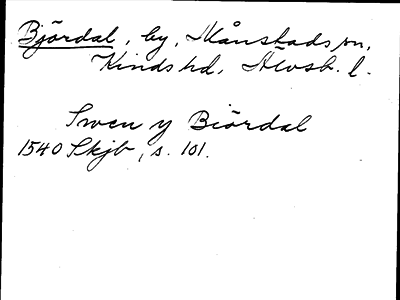 Björdal, by, Månstads sn,
Kinds hd, Älvsb. l.
Swen y Biördal
1540 Skjb, s. 101.